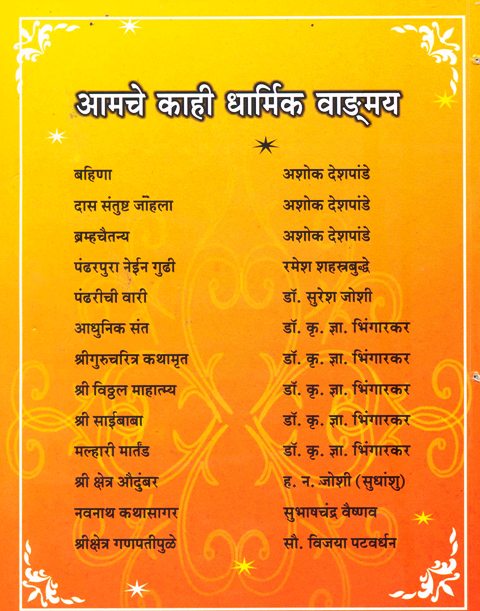 आमचे काही धार्मिक वाङ्‌मय
बहिणा अशोक देशपांडे
दास संतुष्ट जाँहला अशोक देशपांडे
ब्रम्हचैतन्य अशोक देशपांडे
पंढरपुरा नेईन गुढी रमेश शहस्रबुद्धे
पंढरीची वारी डॉ. सुरेश जोशी
आधुनिक संत डॉ. कृ. ज्ञा. भिंगारकर
श्रीगुरुचरित्र कथामृत डॉ. कृ. ज्ञा. भिंगारकर
श्री विठ्ठल माहात्म्य डॉ. कृ. ज्ञा. भिंगारकर
श्री साईबाबा डॉ. कृ. ज्ञा. भिंगारकर
मल्हारी मार्तंड डॉ. कृ. ज्ञा. भिंगारकर
श्री क्षेत्र औदुंबर ह. न. जोशी (सुधांशु)
नवनाथ कथासागर सुभाषचंद्र वैष्णव
श्रीक्षेत्र गणपतीपुळे सौ. विजया पटवर्धन